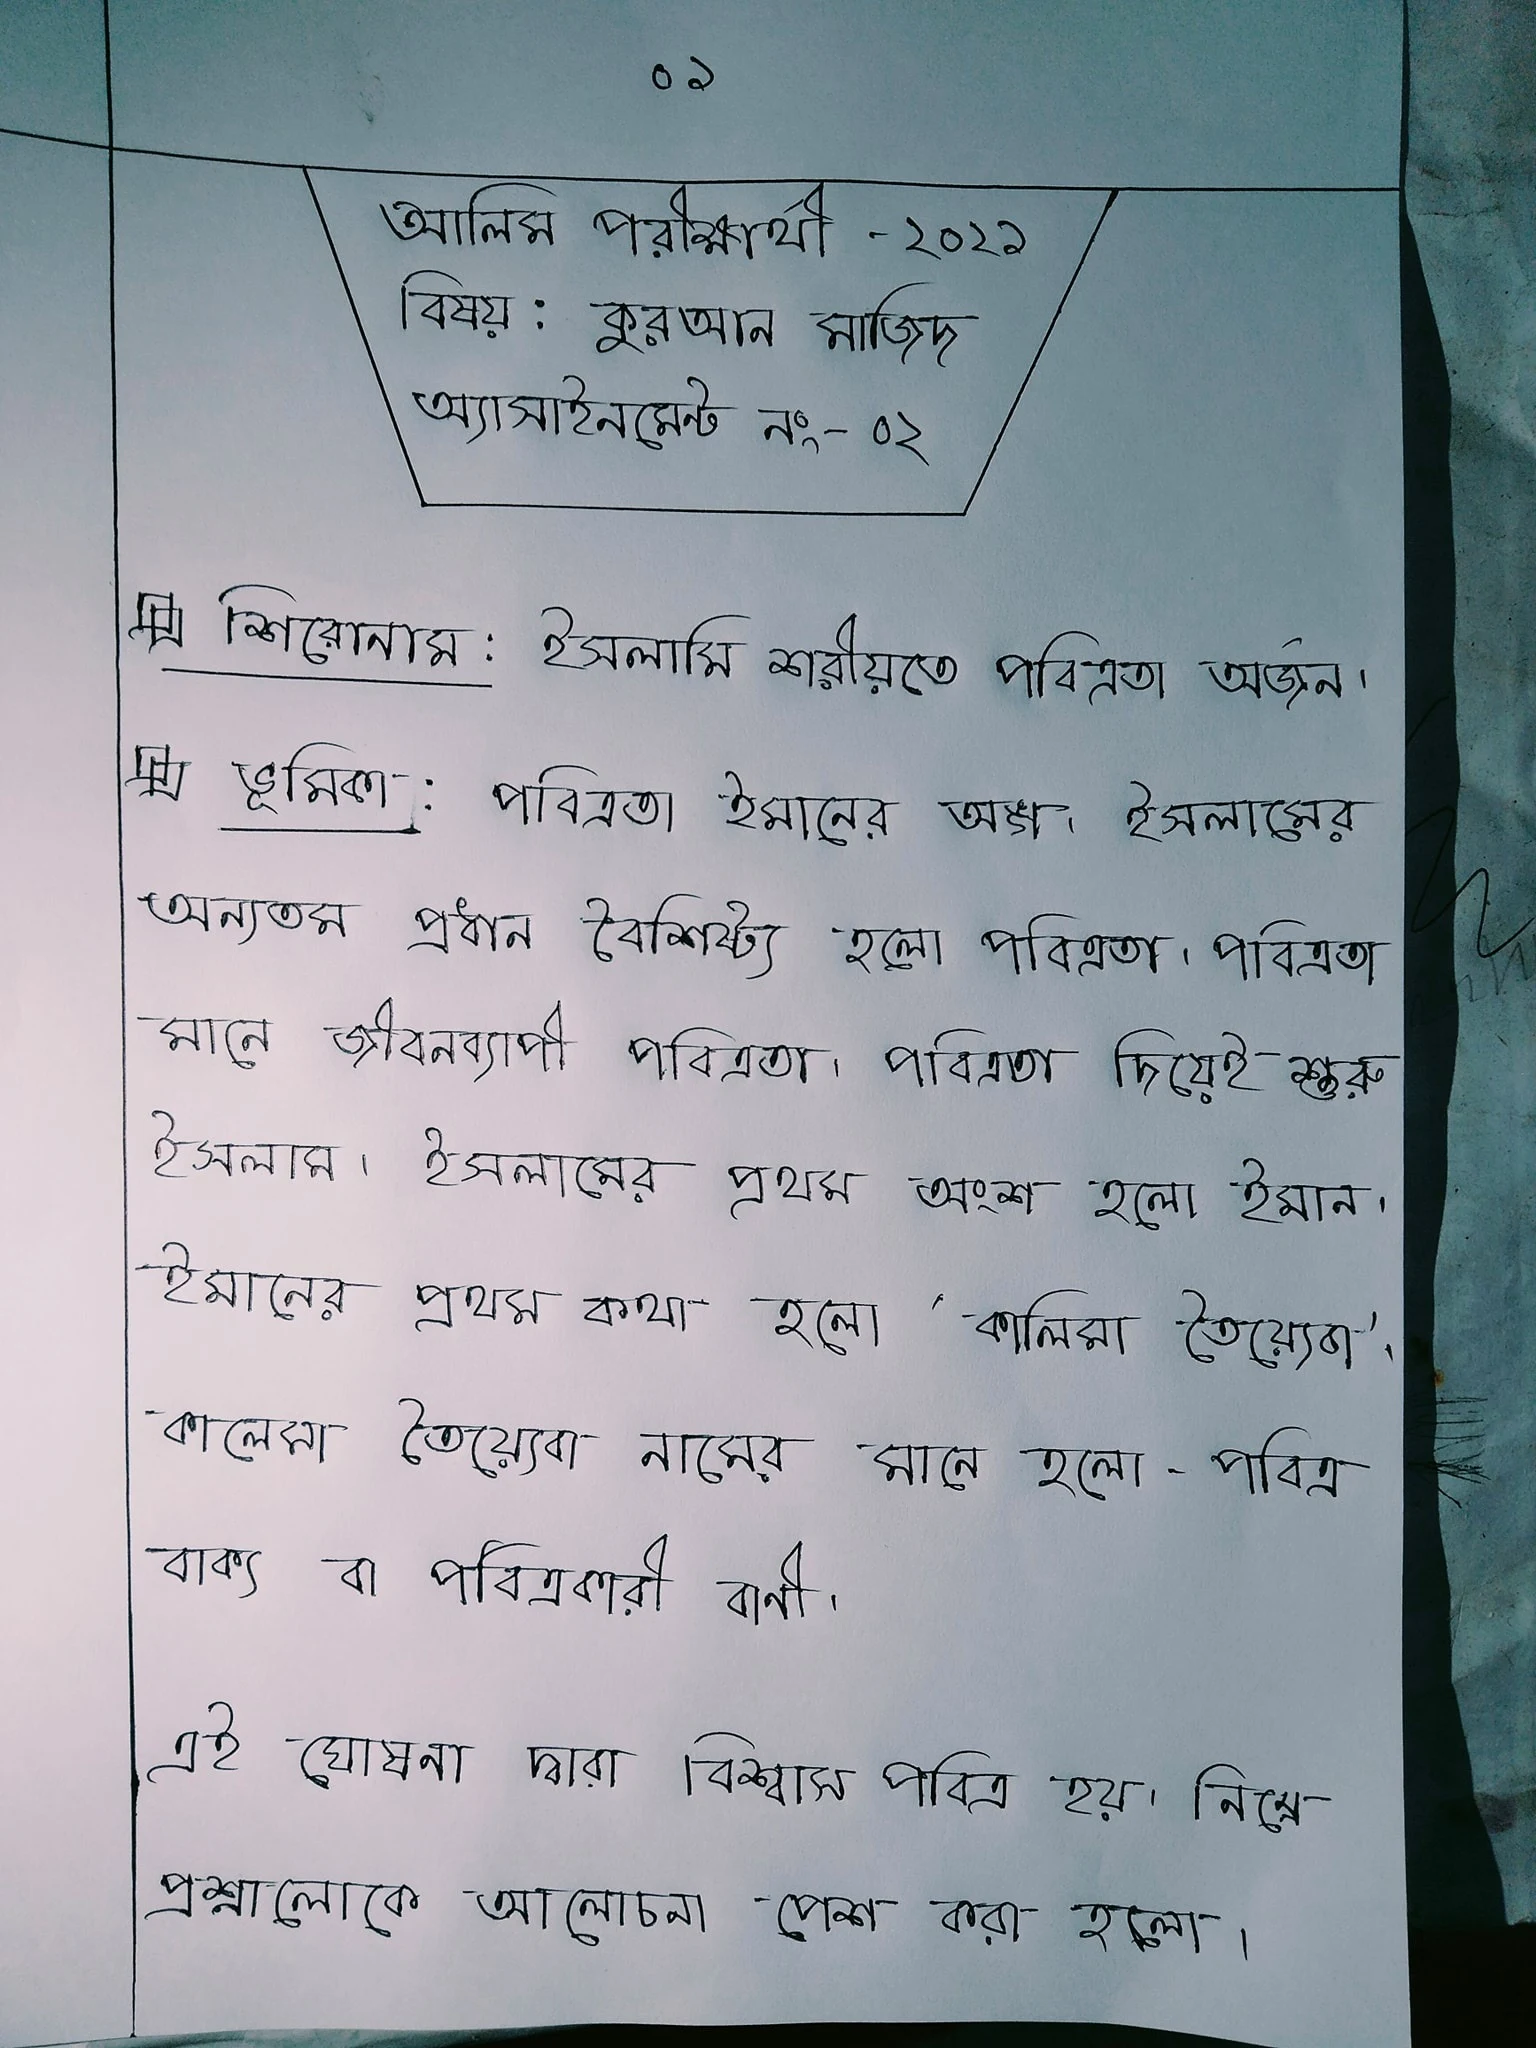 ০১
আলিম পরীক্ষার্থী - ২০২১
বিষয় : কুরআন মাজিদ
অ্যাসাইনমেন্ট নং- ০২
শিরোনাম : ইসলামি শরীয়তে পবিত্রতা অর্জন।
ভূমিকা : পবিত্রতা ইমানের অঙ্গ। ইসলামের
অন্যতম প্রধান বৈশিষ্ট্য হলো পবিত্রতা। পবিত্রতা
মানে জীবনব্যাপী পবিত্রতা। পবিত্রতা দিয়েই শুরু
ইসলাম। ইসলামের প্রথম অংশ হলো ইমান।
ইমানের প্রথম কথা হলো 'কালিমা তৈয়্যেবা'।
কালেমা তৈয়্যেবা নামের মানে হলো - পবিত্র
বাক্য বা পবিত্রকারী বানী।
এই ঘোষনা দ্বারা বিশ্বাস পবিত্র হয়। নিম্নে
প্রশ্নালোকে আলোচনা পেশ করা হলো।